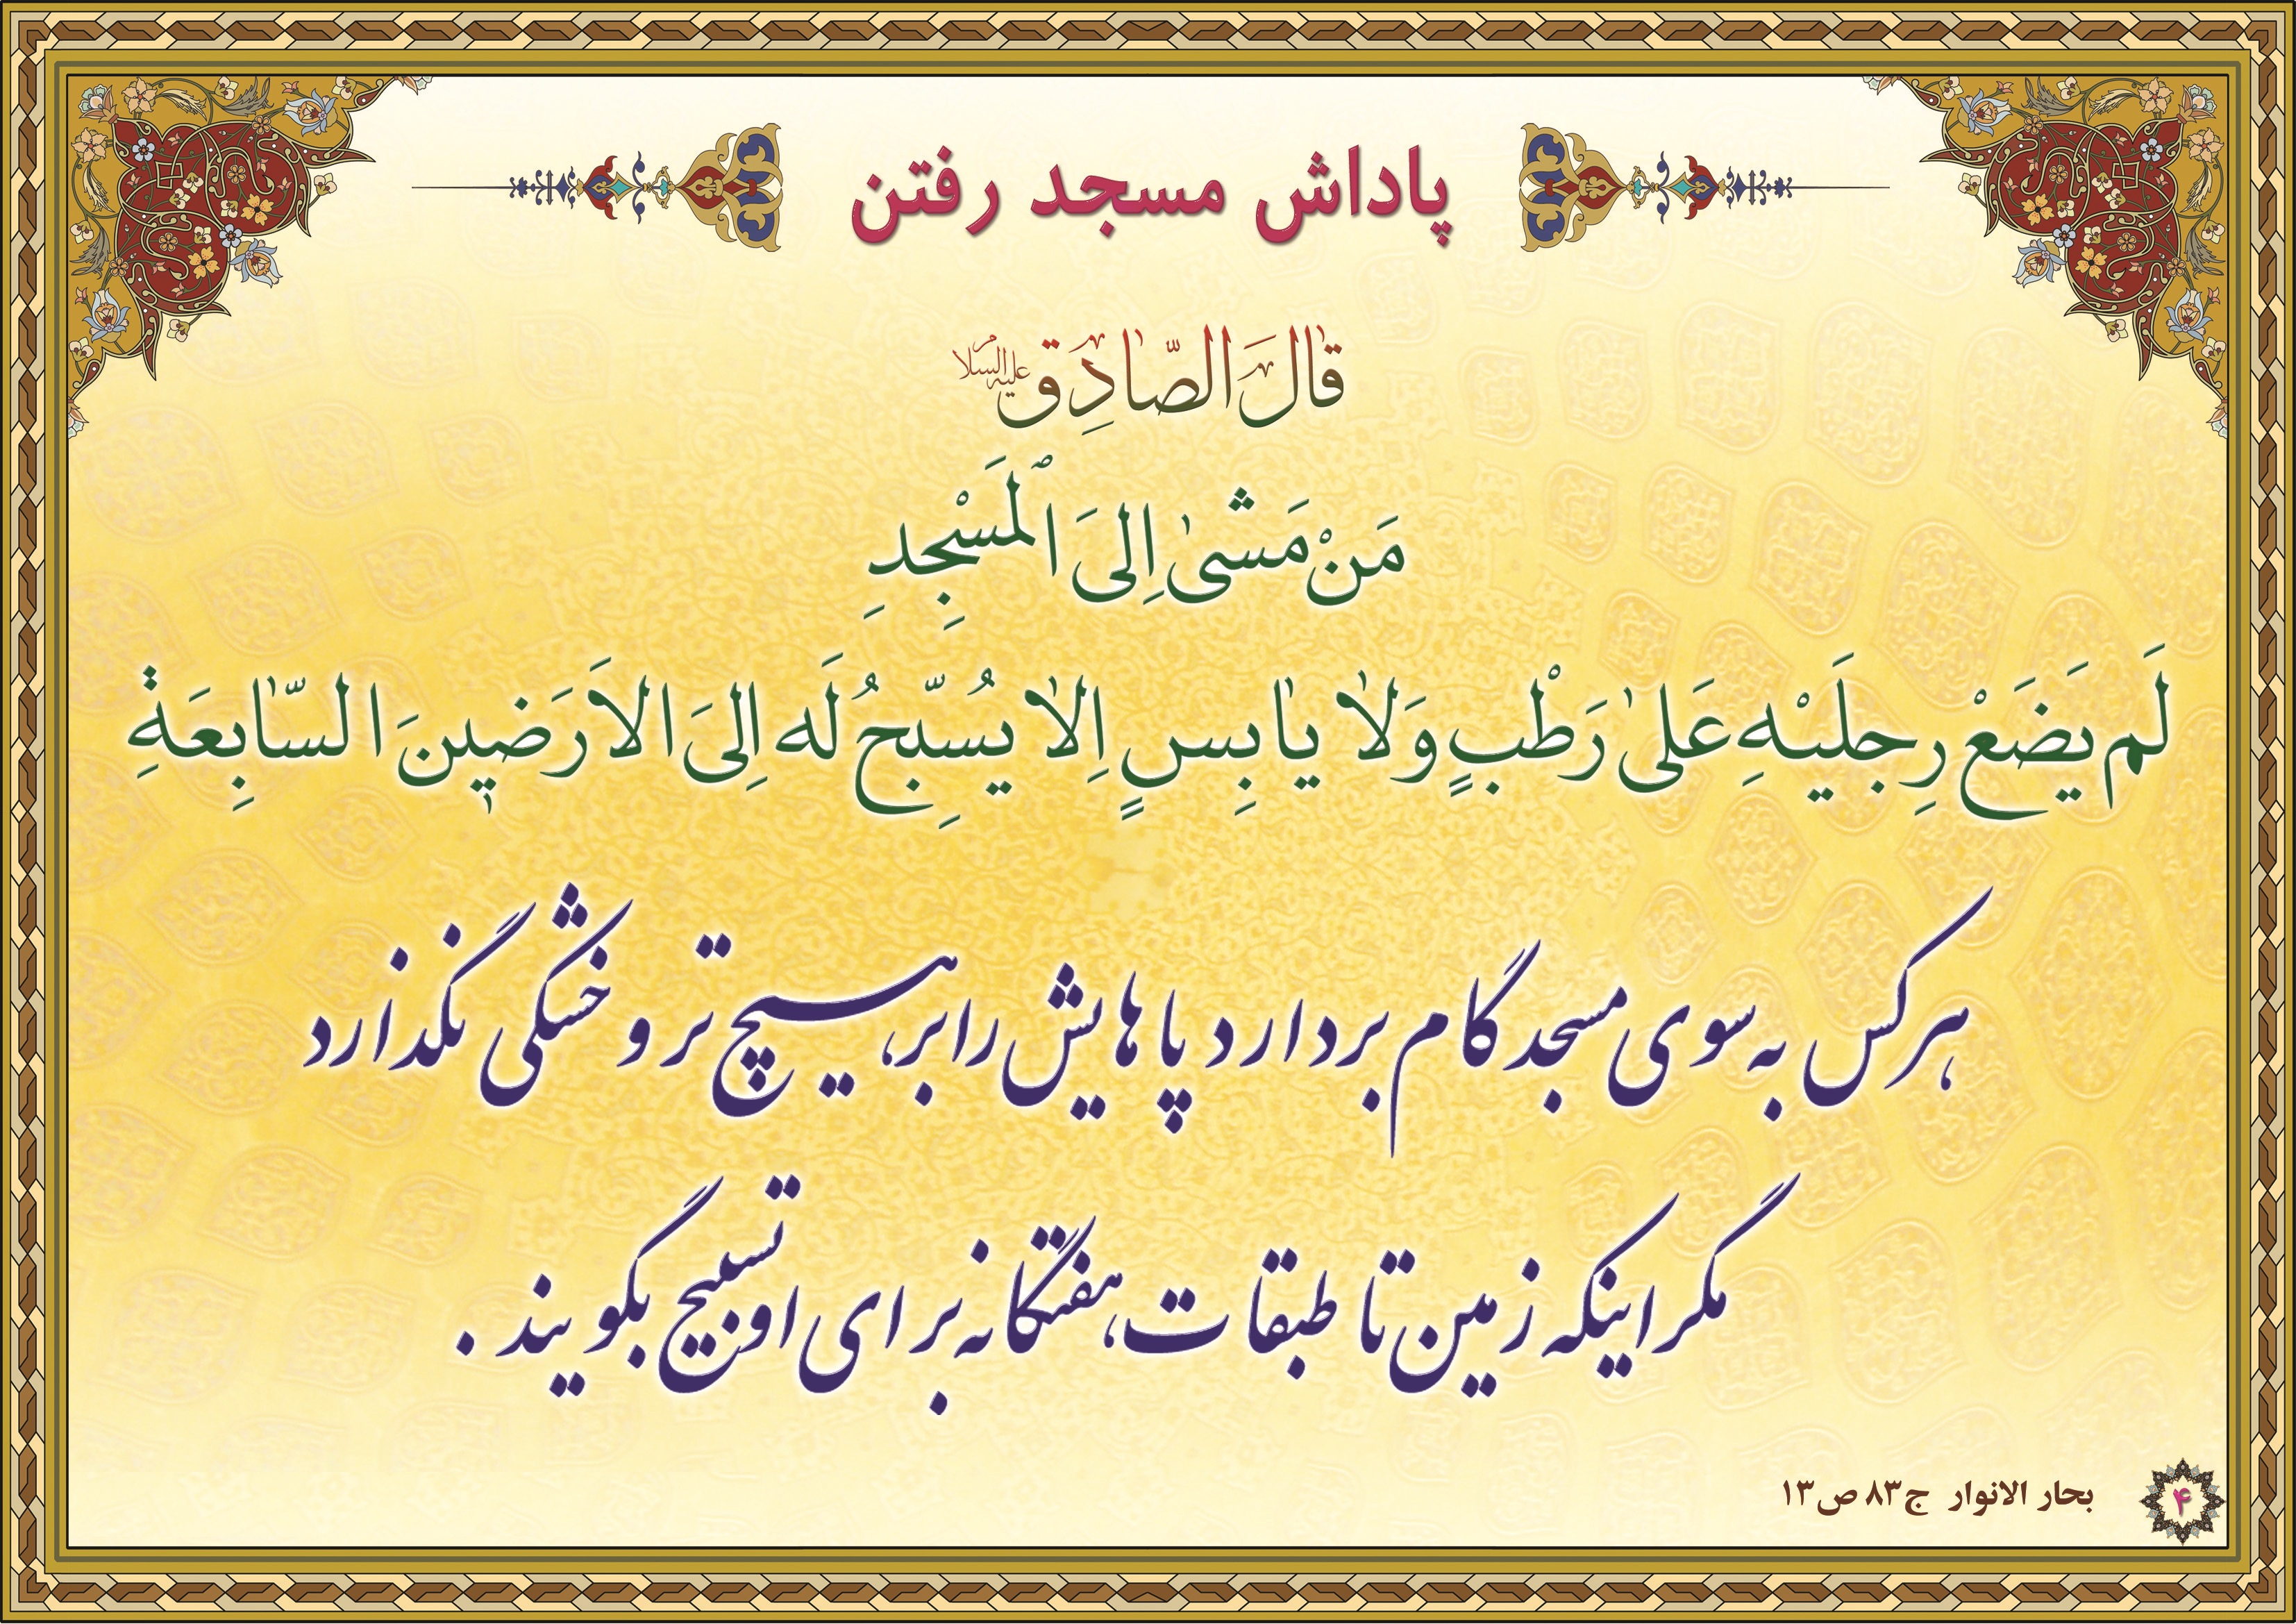 پاداش مسجد رفتن
قالَ الصّادِق علیه‌السلام
مَنْ مَشىٰ اِلىَ الْمَسْجِدِ
لَم یَضَعْ رِجلَیْهِ عَلىٰ رَطْبٍ وَلٰا یٰابِسٍ اِلٰا یُسَبِّحُ لَه اِلىَ الاَرَضینَ السّٰابِعَةِ
هر کس به سوی مسجد گام بردارد پاهایش را بر هیچ تر و خشکی نگذارد
مگر اینکه زمین تا طبقات هفتگانه برای او تسبیح بگویند .
بحار الانوار ج۸۳ ص۱۳
۴